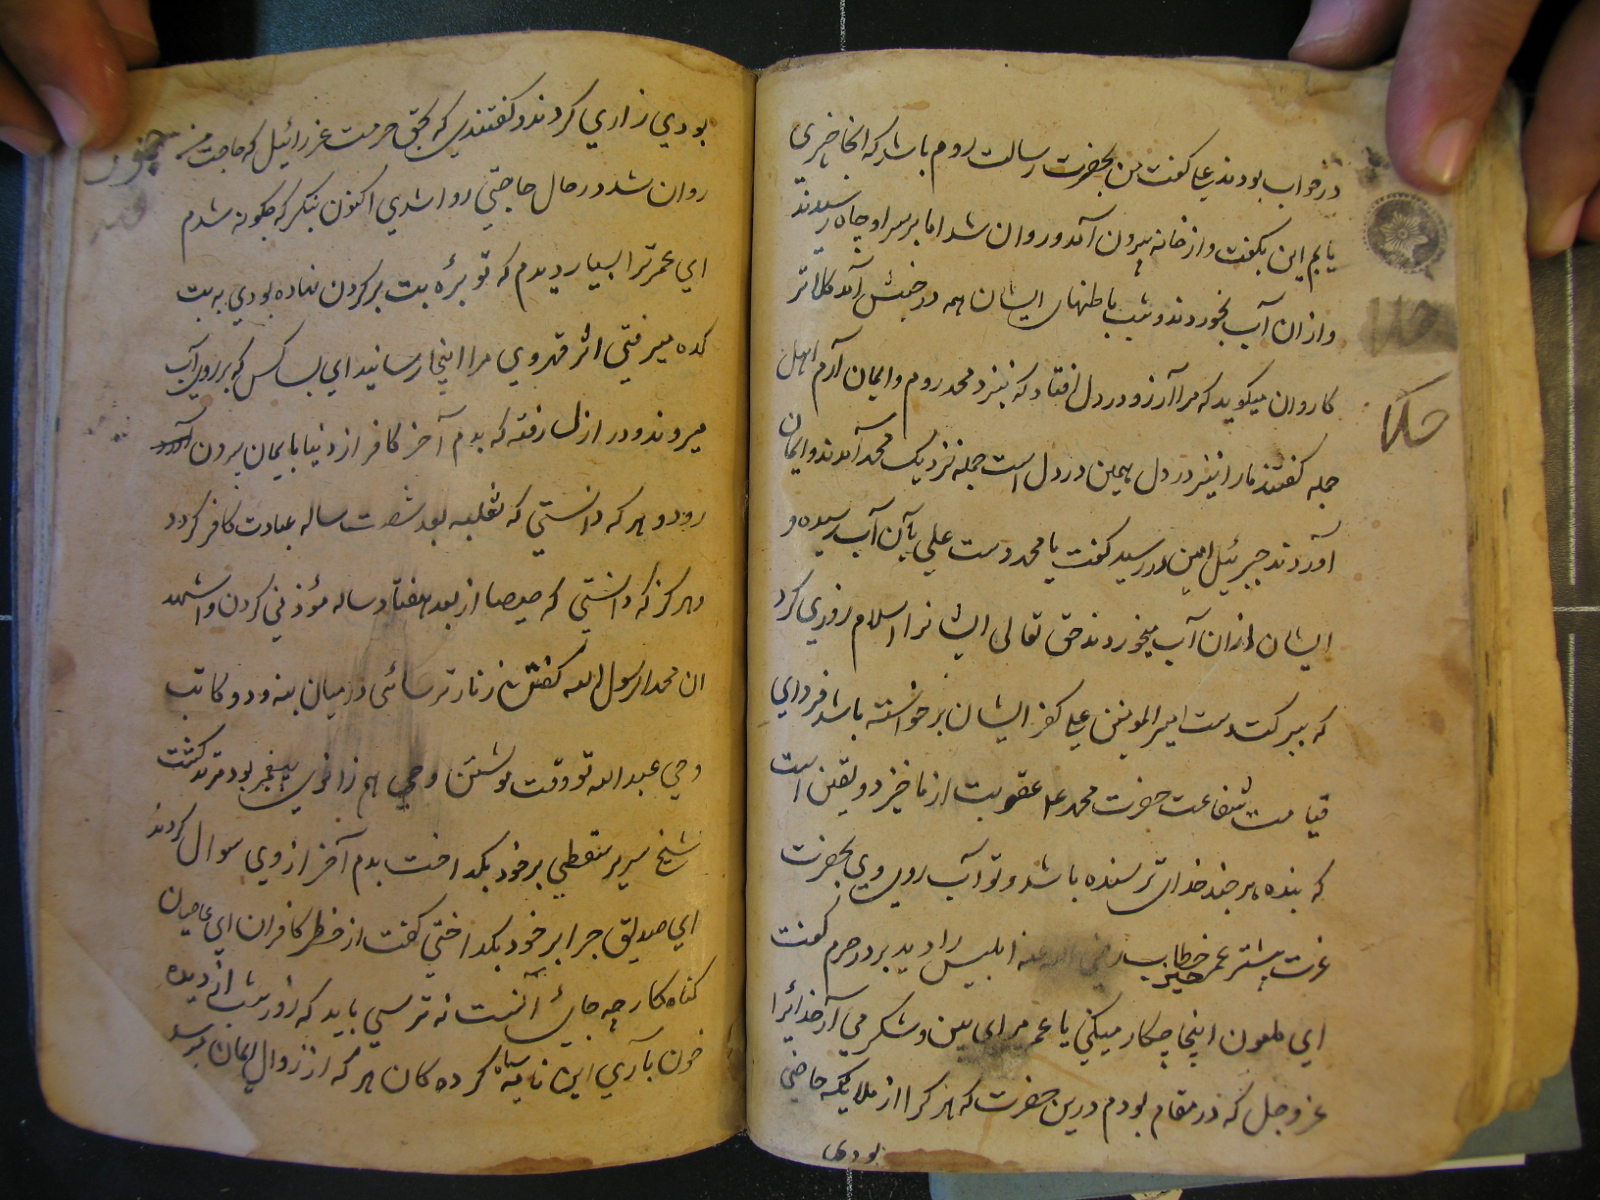 در خواب بودند علی گفت من بحضرت رسالت روم باشد که آنجا خبری
یابم این بگفت و از خانه بیرون آمد و روان شد اما بر سر او چاه رسیدند
و ازان آب بخوردند و شب باطنهای ایشان همه در جنبش آمد کلانتر
کاروان میکوید که مرا آرزو در دل افتاد که نیزد محمد روم و ایمان آرم اهل
جمله کفتند مارا نیز در دل همین در دل است جمله نزدیک محمد آمدند و ایمان
آوردند جبرئیل امین در رسید کفت یا محمد دست علی بآن آب رسیده و
ایشان ازان آب میخوردند حق تعالی ایشانرا اسلام روزی کرد
که ببرکت دست امیر المومنین علی کفر ایشان برخواسته باشد فردای
قیامت شفاعت حضرت محمد عقوبت از ما خیزد و یقین است
که بنده هر چند خدای ترسنده باشد و تو آب روی وی بحضرت
عزت بیشتر عمر خطاب رضی الله عنه ابلیس را دید بر در حرم کفت
ای ملعون اینجا چکار میکنی یا عمر مرا می بین و شکر می آر خدائرا
عز و جل که در مقام بودم درین حضرت که هر کرا از ملایکه حاجتی
بودی
حکا
بودی زاری کردند و کفتندی که بحق حرمت عزرائیل که حاجت من
روان شد در حال حاجتی روا شدی اکنون بنکر که چکونه شدم
ای عمر ترا بسیار دیدم که تو بره بت بر کردن نهاده بودی به بت
کده میرفتی اثر قهر وی مرا اینجا رسانید ای بسا کس که بر روی آب
میروند و در ازل رفته که بدم آخر کافر از دنیا بایمان برون
رود و هر که دانستی که ثعلبه بعد شصت ساله عبادت کافر کردد
و هر کز که دانستی که برصیصا از بعد هفتاد ساله مؤذنی کردن و اشهد
ان محمدا رسول الله کفتن زنار ترسائی در میان بندد و کاتب
وحی عبدالله تو وقت نوشتن وحی هم زانوی پیغمبر بود مرتد کشت
شیخ سری سقطی بر خود بکداخت بدم آخر از وی سوال کردند
ای صدیق چرا بر خود بکداختی کفت از خطر کافران ای عاصیان
کناه کار چه جای آنست نه ترسی باید که روز شب از دیده
خون باری این نامه سیاه کرده کان هر که از زوال ایمان ترسد